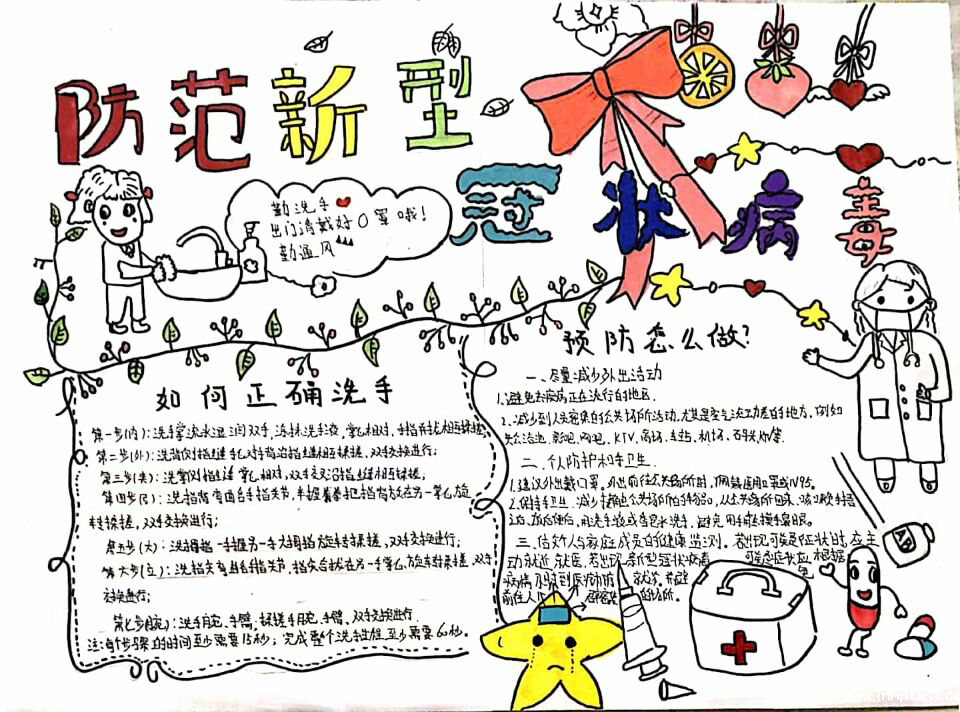 防范新型
冠状病毒
勤洗手
出门请戴好口罩哦！
勤通风
如何正确洗手
第一步(内)：洗手掌 流水湿润双手，涂抹洗手液，掌心相对，手指并拢相互揉搓；
第二步(外)：洗背侧指缝 手心对手背沿指缝相互揉搓，双手交换进行；
第三步(夹)：洗掌侧指缝 掌心相对，双手交叉沿指缝相互揉搓；
第四步(弓)：洗指背 弯曲各手指关节，半握拳把指背放在另一掌心旋
转揉搓，双手交换进行；
第五步(大)：洗拇指 一手握另一手大拇指旋转揉搓，双手交换进行；
第六步(立)：洗指尖 弯曲各手指关节，指尖合拢在另一手掌心旋转揉搓，双手
交换进行；
第七步(腕)：洗手腕、手臂 揉搓手腕、手臂，双手交换进行
注：每个步骤的时间至少需要15秒；完成整个洗手过程至少需要60秒。
预防怎么做？
一、尽量减少外出活动
1.避免去疾病正在流行的地区.
2.减少到人员密集的公共场所活动，尤其是空气流动差的地方，例如
公共浴池、影吧、网吧、KTV、商场、车站、机场、
二、个人防护和手卫生
1.建议外出戴口罩，外出前往公共场所时，佩戴医用口罩或N95。
2.保持手卫生，减少接触公共场所的物品，从公共场所回来、咳嗽手捂
之后、饭前便后，用洗手液或香皂水洗手，避免用手触摸口鼻眼。
三、信教人与家庭成员的健康监测。若出现可疑的症状时，应主
动就近就医。若出现新型冠状病毒 可疑症状应 根据
病情 及时到医疗 就诊 并避 免
前往人
AB